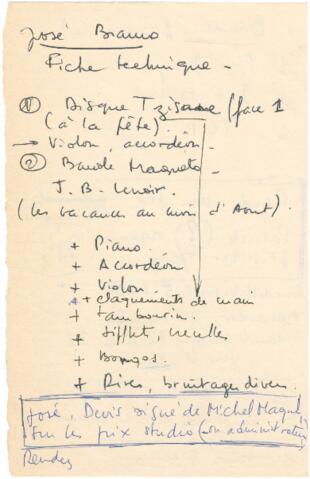 José Bramo
Fiche technique -
① Disque Tzigane (face 1
(à la fête).
→ Violon, accordéon -
② Bande Magneto -
J. B. Lenoir.
(les vacances au mois d'Aout).
+ Piano.
+ Accordéon
+ Violon.
+ claquements de main
+ tambourin.
+ sifflets,
+ Bongos.
+ Rires, bruitages divers.
José, Devis signé de Michel Magne,
sur les prix studio (son administrateur)
Rendez